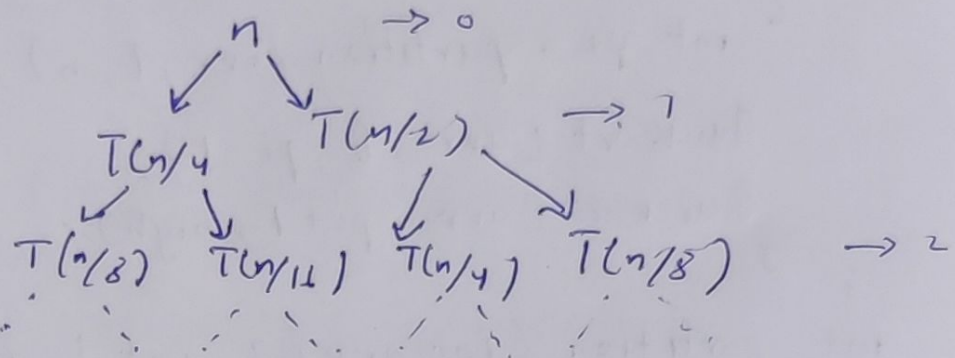 n → 0
T(n/4 T(n/2) → 1
T(n/8) T(n/16) T(n/4) T(n/8) → 2